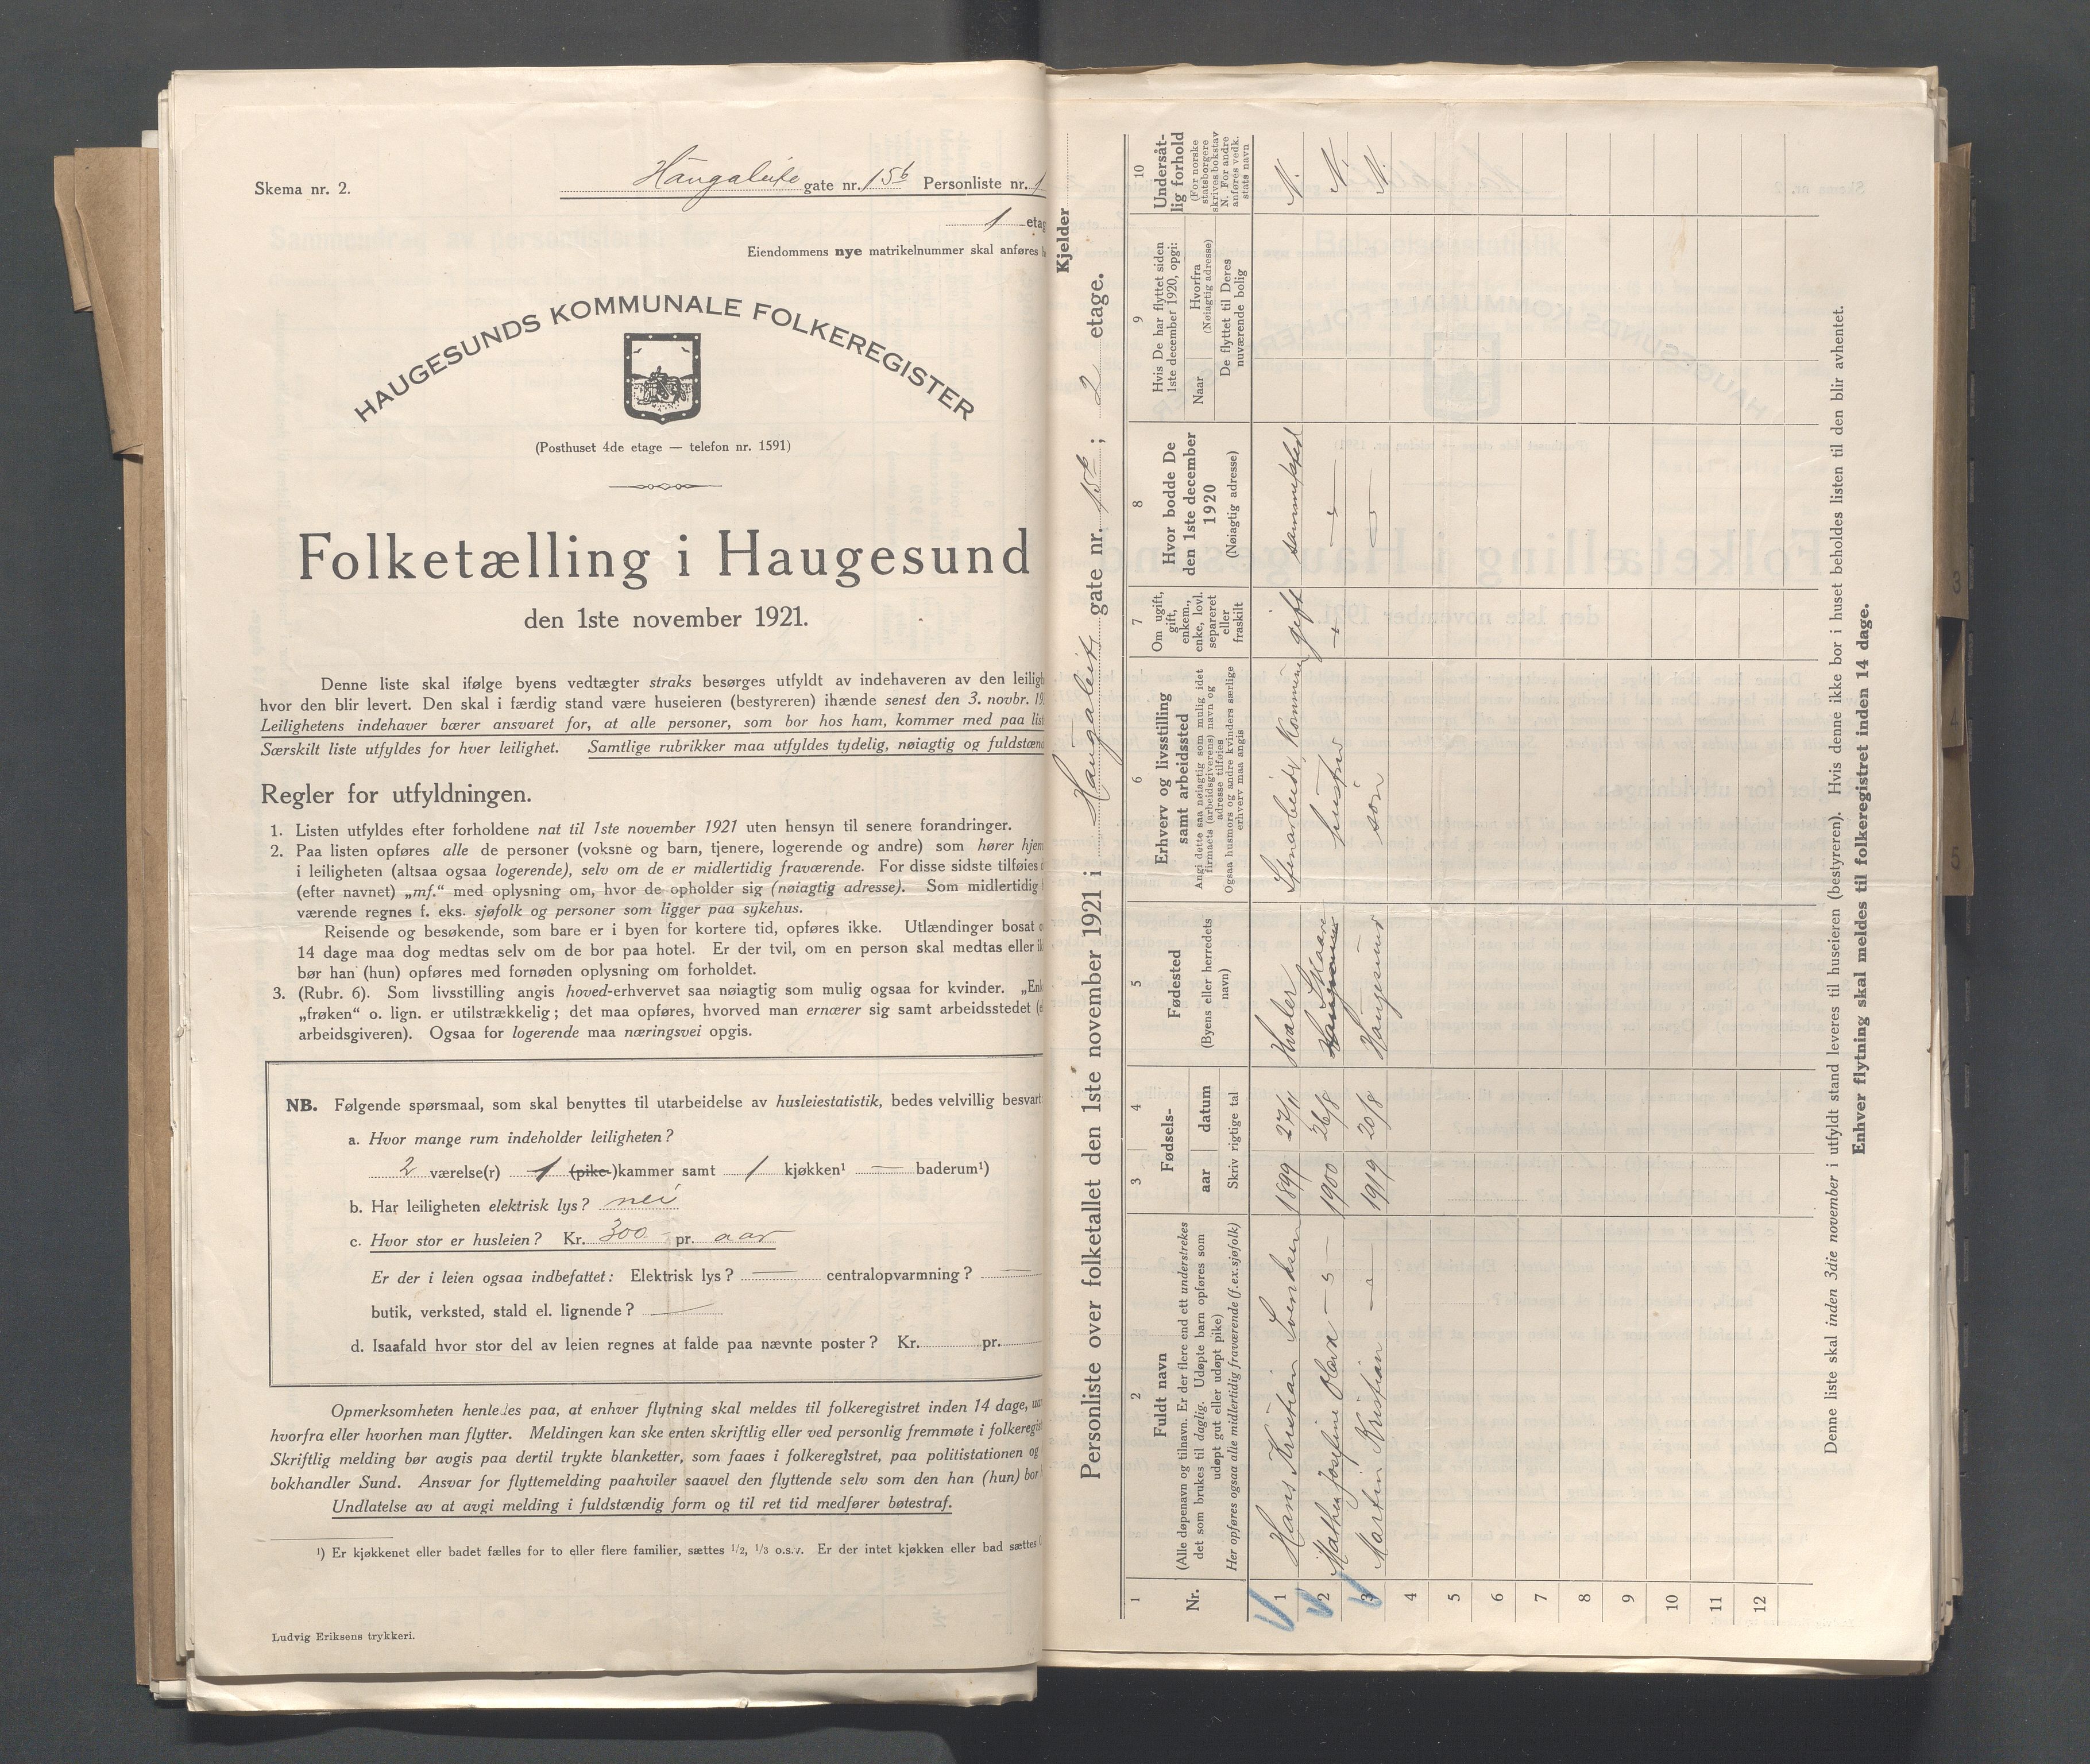 Skema nr. 2.
Haugaleite gate nr. 15b Personliste nr. 1
1 etag
Eiendommens nye matrikelnummer skal anføres h
HAUGESUNDS KOMMUNALE FOLKEREGISTER
(Posthuset 4de etage — telefon nr. 1591)
Folketælling i Haugesund
den 1ste november 1921.
Denne liste skal ifølge byens vedtægter straks besørges utfyldt av indehaveren av den leiligh
hvor den blir levert. Den skal i færdig stand være huseieren (bestyreren) ihænde senest den 3. novbr. 19
Leilighetens indehaver bærer ansvaret for, at alle personer, som bor hos ham, kommer med paa list
Særskilt liste utfyldes for hver leilighet. Samtlige rubrikker maa utfyldes tydelig, nøiagtig og fuldstænd
Regler for utfyldningen.
1. Listen utfyldes efter forholdene nat til 1ste november 1921 uten hensyn til senere forandringer.
2. Paa listen opføres alle de personer (voksne og barn, tjenere, logerende og andre) som hører hjem
i leiligheten (altsaa ogsaa logerende), selv om de er midlertidig fraværende. For disse sidste tilføies d
(efter navnet) „mf.“ med oplysning om, hvor de opholder sig (nøiagtig adresse). Som midlertidig
værende regnes f. eks. sjøfolk og personer som ligger paa sykehus.
Reisende og besøkende, som bare er i byen for kortere tid, opføres ikke. Utlændinger bosat o
14 dage maa dog medtas selv om de bor paa hotel. Er der tvil, om en person skal medtas eller ik
bør han (hun) opføres med fornøden oplysning om forholdet.
3. (Rubr. 6). Som livsstilling angis hoved-erhvervet saa nøiagtig som mulig ogsaa for kvinder. „Enk
„frøken“ o. lign. er utilstrækkelig; det maa opføres, hvorved man ernærer sig samt arbeidsstedet (e
arbeidsgiveren). Ogsaa for logerende maa næringsvei opgis.
NB. Følgende spørsmaal, som skal benyttes til utarbeidelse av husleiestatistik, bedes velvillig besvart:
a. Hvor mange rum indeholder leiligheten?
2 værelse(r) 1 (pike-)kammer samt 1 kjøkken¹ — baderum¹)
b. Har leiligheten elektrisk lys? nei
c. Hvor stor er husleien? Kr. 300 - pr. aar
Er der i leien ogsaa indbefattet: Elektrisk lys? — centralopvarmning? —
butik, verksted, stald el. lignende? —
d. Isaafald hvor stor del av leien regnes at falde paa nævnte poster? Kr. pr.
Opmerksomheten henledes paa, at enhver flytning skal meldes til folkeregistret inden 14 dage,
hvorfra eller hvorhen man flytter. Meldingen kan ske enten skriftlig eller ved personlig fremmøte i folkeregis
Skriftlig melding bør avgis paa dertil trykte blanketter, som faaes i folkeregistret, paa politistationen og
bokhandler Sund. Ansvar for flyttemelding paahviler saavel den flyttende selv som den han (hun) bor
Undlatelse av at avgi melding i fuldstændig form og til ret tid medfører bøtestraf.
¹) Er kjøkkenet eller badet fælles for to eller flere familier, sættes 1/2, 1/3 o.s.v. Er der intet kjøkken eller bad sættes 0
Ludvig Eriksens trykkeri.
Kjelder
Personliste over folketallet den 1ste november 1921 i Haugaleite gate nr. 15b; 2 etage.
1 2 3 4 5 6 7 8 9 10
Nr.
Fuldt navn
(Alle døpenavn og tilnavn. Er der flere end ett understrekes
det som brukes til daglig. Udøpte barn opføres som
udøpt gut eller udøpt pike)
Her opføres ogsaa alle midlertidig fraværende (f.ex.sjøfolk)
Fødsels-
aar datum
Skriv rigtige tal
Fødested
(Byens eller herredets
navn)
Erhverv og livsstilling
samt arbeidssted
Angi dette saa nøiagtig som mulig idet
firmaets (arbeidsgiverens) navn og
adresse tilføies
Ogsaa husmors og andre kvinders særlige
erhverv maa angis
Om ugift,
gift,
enkem.,
enke, lovl.
separeret
eller
fraskilt
Hvor bodde De
den 1ste december
1920
(Nøiagtig adresse)
Hvis De har flyttet siden
1ste december 1920, opgi:
Naar
Hvorfra
(Nøiagtig adresse)
De flyttet til Deres
nuværende bolig
Undersåt-
lig forhold
(For norske
statsborgere
skrives bokstav
N. For andre
anføres vedk.
stats navn
1 Hans Kristian Svendsen 1899 27/11 Hvaler Stenarbeider, kommunen gift sammested N.
2 Mathea Josefine Olava — " — 1900 26/8 Haugesund Skaare hustru + — " — N.
3 Martin Kristian — " — 1919 20/8 Haugesund søn — " — N.
4
5
6
7
8
9
10
11
12
Denne liste skal inden 3die november i utfyldt stand leveres til huseieren (bestyreren). Hvis denne ikke bor i huset beholdes listen til den blir avhentet.
Enhver flytning skal meldes til folkeregistret inden 14 dage.
3
4
5